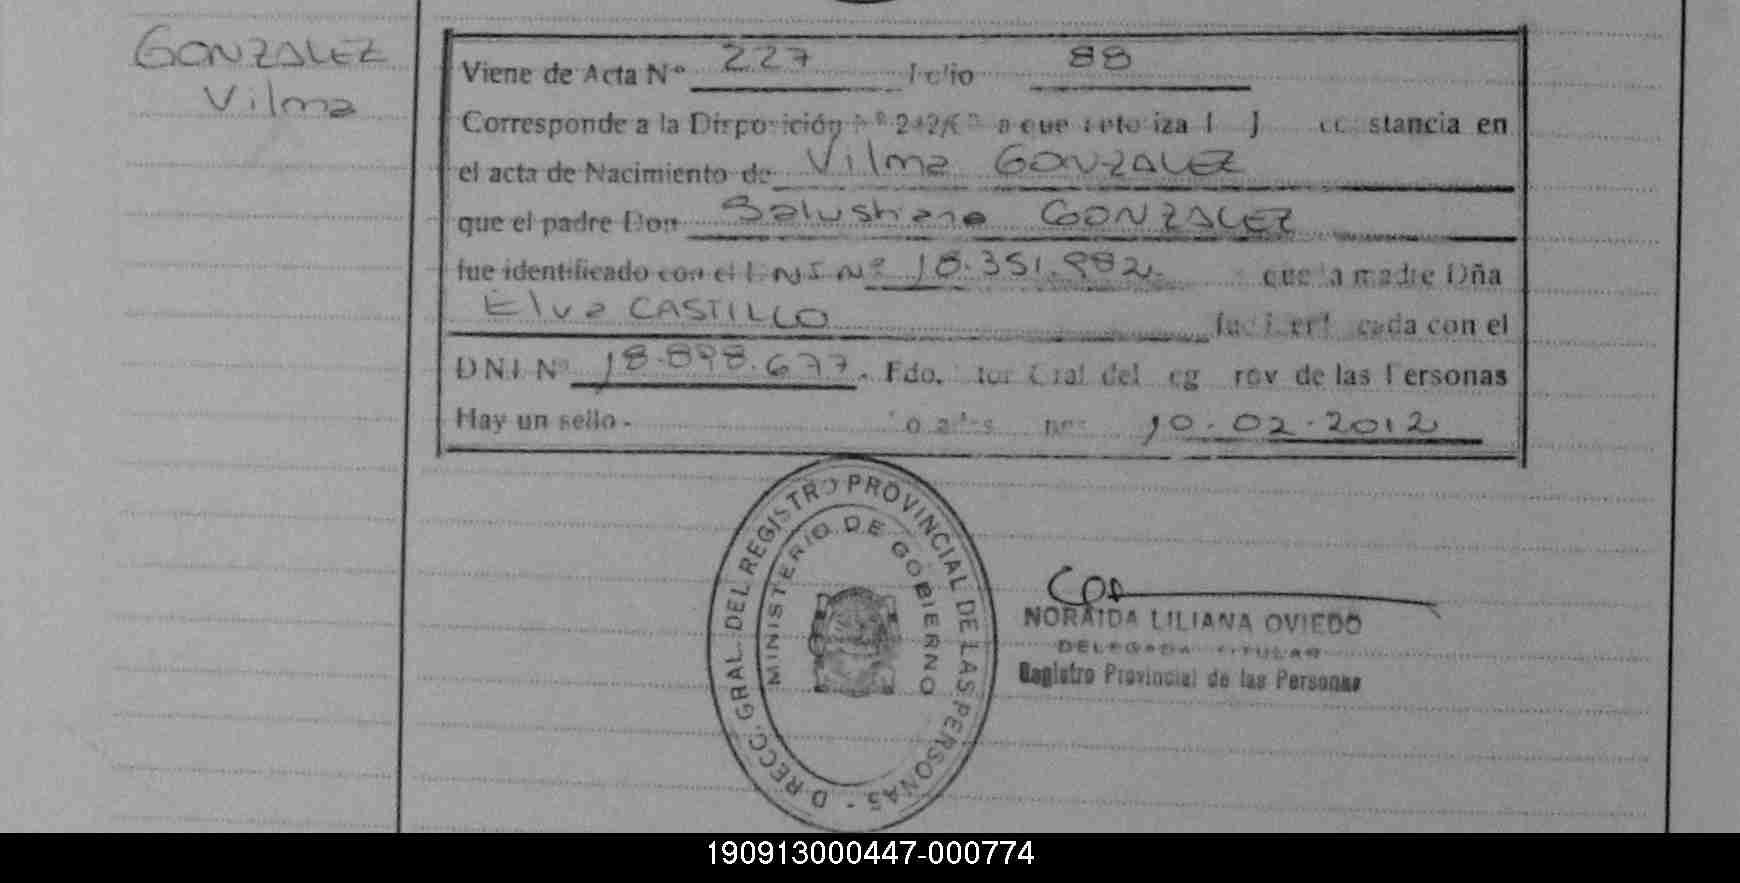 GONZALEZ
Vilma
Viene de Acta Nº 227 Folio 88
Corresponde a la Disposición a que autoriza constancia en
el acta de Nacimiento de Vilma GONZALEZ
que el padre Don Salustiano GONZALEZ
fue identificado con el D.N.I. Nº 18.351.982 que la madre Dña
Elva CASTILLO fue identificada con el
DNI Nº 18.898.677. Fdo. Gral del de las Personas
Hay un sello. 10.02.2012
DIRECC. GRAL. DEL REGISTRO PROVINCIAL DE LAS PERSONAS -
MINISTERIO DE GOBIERNO
NORAIDA LILIANA OVIEDO
DELEGADA TITULAR
Registro Provincial de las Personas
190913000447-000774